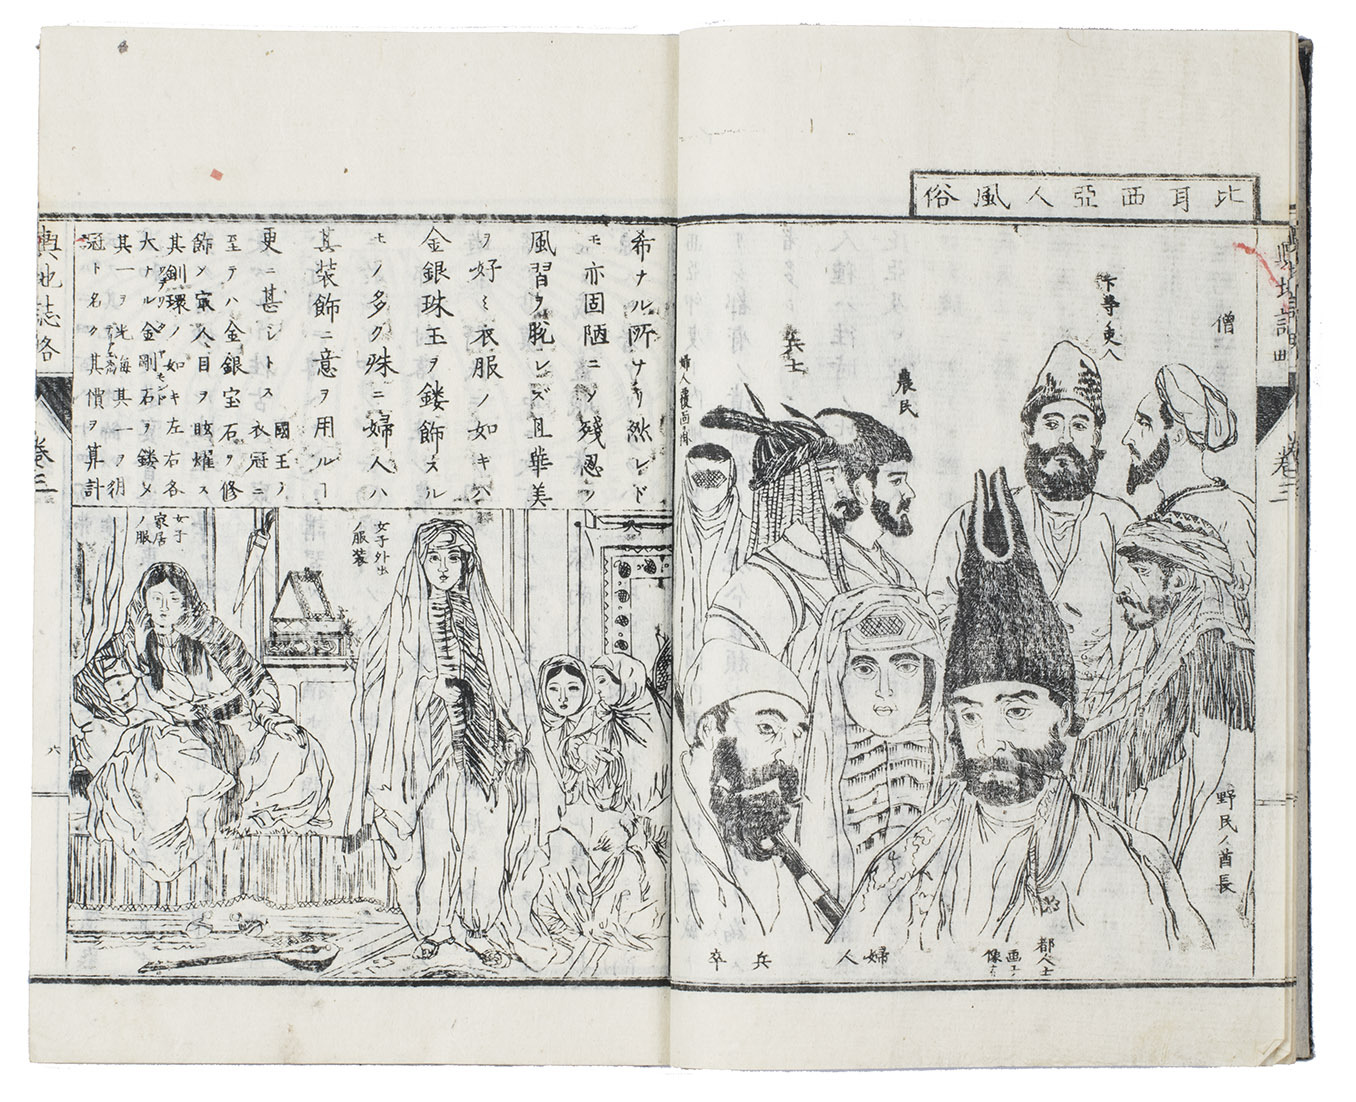 比耳西亞人風俗
僧
農民
兵士
野民ノ酋長
都人士
婦人
兵卒
輿地誌略
卷三
希ナル所ナリ然レド
モ亦固陋ニノ殘忍ノ
風習ヲ脫レズ且華美
ヲ好ミ衣服ノ如キハ
金銀珠玉ヲ鏤飾スル
モノ多ク殊ニ婦人ハ
其裝飾ニ意ヲ用ルヿ
更ニ甚シトス國王ノ衣冠ニ
至テハ金銀宝石ヲ修
飾メ家人目ヲ眩耀ス
其釧環ノ如キ左右各
大ナル金剛石ヲ鏤メ
其一ヲ光海其一ヲ
冠ト名ク其價ヲ算計
女子外出
ノ服裝
女子
家居
ノ服
輿地誌略
卷三
六